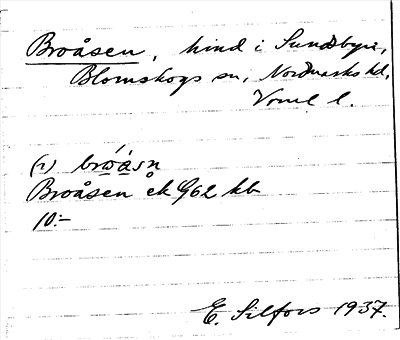 Broåsen, hind i Sundsbyn,
Blomskogs sn, Nordmarks hd,
Vrml l.
(1) bróàsn
Broåsen ek G62 kb
10:-
E. Silfors 1937.